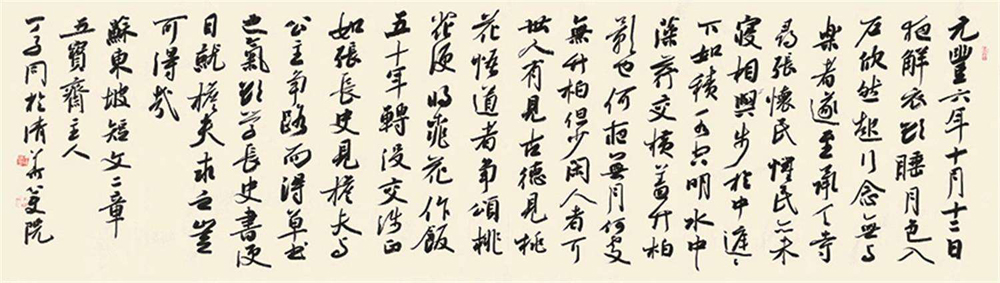 元豐六年十月十二日
夜解衣欲睡月色入
户欣然起行念無与
樂者遂至承天寺
尋張懷民懷民亦未
寢相與步於中庭〻
下如積水空明水中
藻荇交橫蓋竹柏
影也何夜無月何處
無竹柏但少閑人者耳
世人有見古德見桃
花悟道者爭頌桃
花便將桃花作飯
五十年轉沒交涉正
如張長史見擔夫与
公主爭路而得草書
之氣欲學長史書便
日就擔夫求之豈
可得哉
蘇東坡短文二章
五寶齋主人
於清華美院